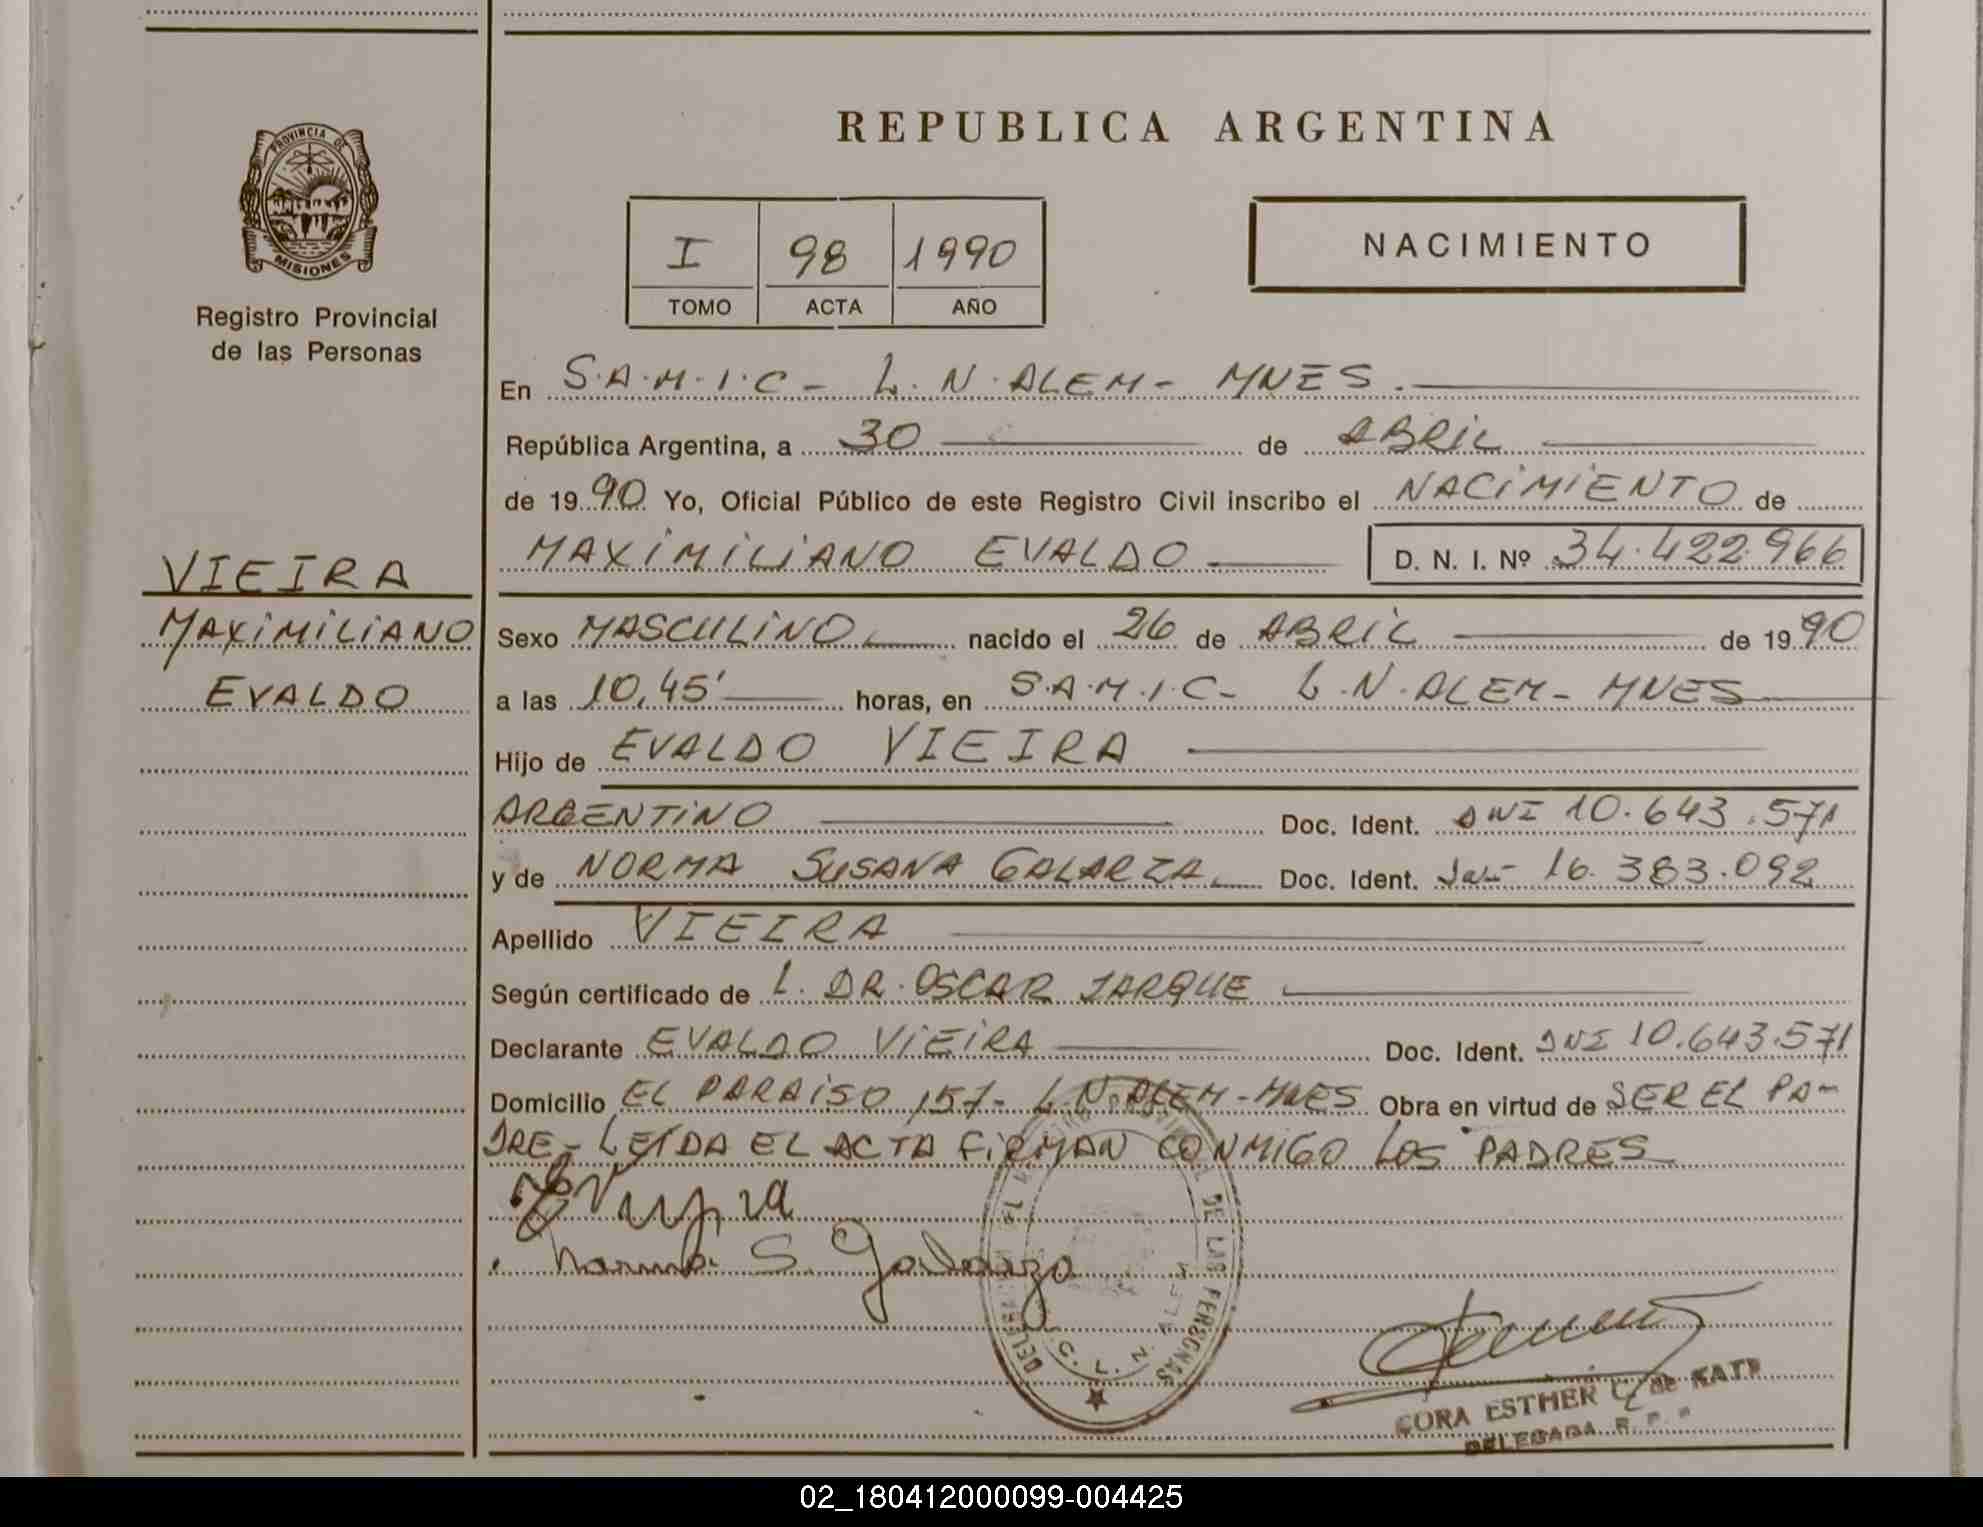 PROVINCIA DE
MISIONES
Registro Provincial
de las Personas
VIEIRA
MAXIMILIANO
EVALDO
REPUBLICA ARGENTINA
I 98 1990
TOMO ACTA AÑO
NACIMIENTO
En S.A.M.I.C - L.N.ALEM - MNES.
República Argentina, a 30 de ABRIL
de 1990 Yo, Oficial Público de este Registro Civil inscribo el NACIMIENTO de
MAXIMILIANO EVALDO D. N. I. Nº 34.422.966
Sexo MASCULINO nacido el 26 de ABRIL de 1990
a las 10,45' horas, en S.A.M.I.C - L.N.ALEM - MNES
Hijo de EVALDO VIEIRA
ARGENTINO Doc. Ident. DNI 10.643.571
y de NORMA SUSANA GALARZA Doc. Ident. 16.383.092
Apellido VIEIRA
Según certificado de L. DR. OSCAR JARQUE
Declarante EVALDO VIEIRA Doc. Ident. DNI 10.643.571
Domicilio EL PARAISO 157 - L.N.ALEM - MNES Obra en virtud de SER EL PA-
DRE - LEIDA EL ACTA FIRMAN CONMIGO LOS PADRES
Norma S. Galarza
DE LAS PERSONAS
L. N. ALEM
CORA ESTHER C. de
DELEGADA R. P. P.
02_180412000099-004425